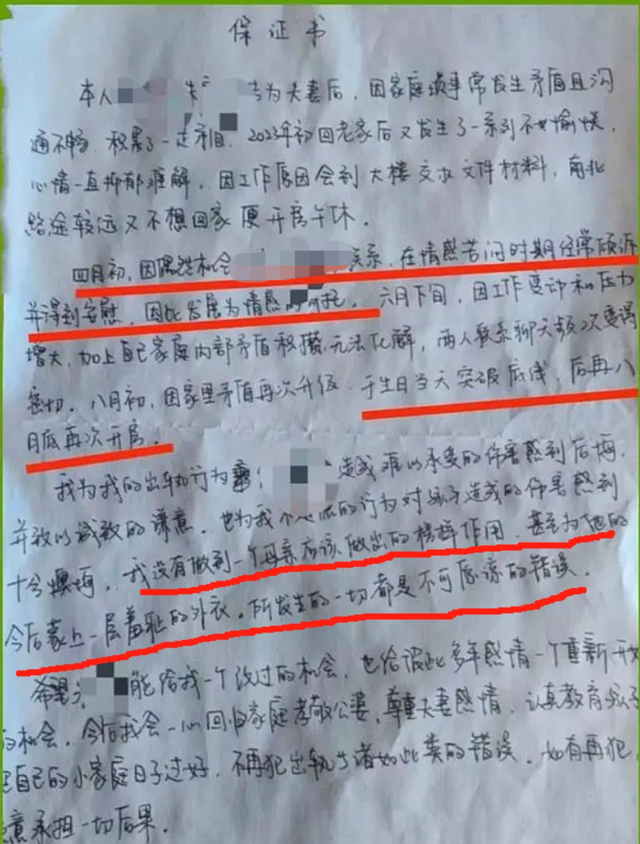 保证书
本人 为夫妻后，因家庭琐事常发生矛盾且沟
通不畅，积累了一定 。2023年初回老家后又发生了一系列不愉快，
心情一直抑郁难解。因工作原因会到大楼交办文件材料，南北
路途较远又不想回家便开房午休。
四月初，因偶然机会 关系，在情感苦闷时期经常倾诉
并得到安慰，因此发展为情感 。六月下旬，因工作变动和压力
增大，加上自己家庭内部矛盾积攒无法化解，两人联系聊天频次变得
密切。八月初，因家里矛盾再次升级，于生日当天突破底线，后再八
月底再次开房。
我为我的出轨行为 造成难以承受的伤害感到后悔，
并致以诚致的歉意。也为我个人 的行为对孩子造成的伤害感到
十分懊悔，我没有做到一个母亲应该做出的榜样作用，甚至为他的
今后蒙上一层羞耻的外衣。所发生的一切都是不可原谅的错误。
希望 能给我一个改过的机会，也给彼此多年感情一个重新开
的机会。今后我会一心回归家庭孝敬公婆，尊重夫妻感情，认真教育孩子
自己的小家庭日子过好，不再犯出轨 诸如此类的错误。如有再犯，
意承担一切后果。